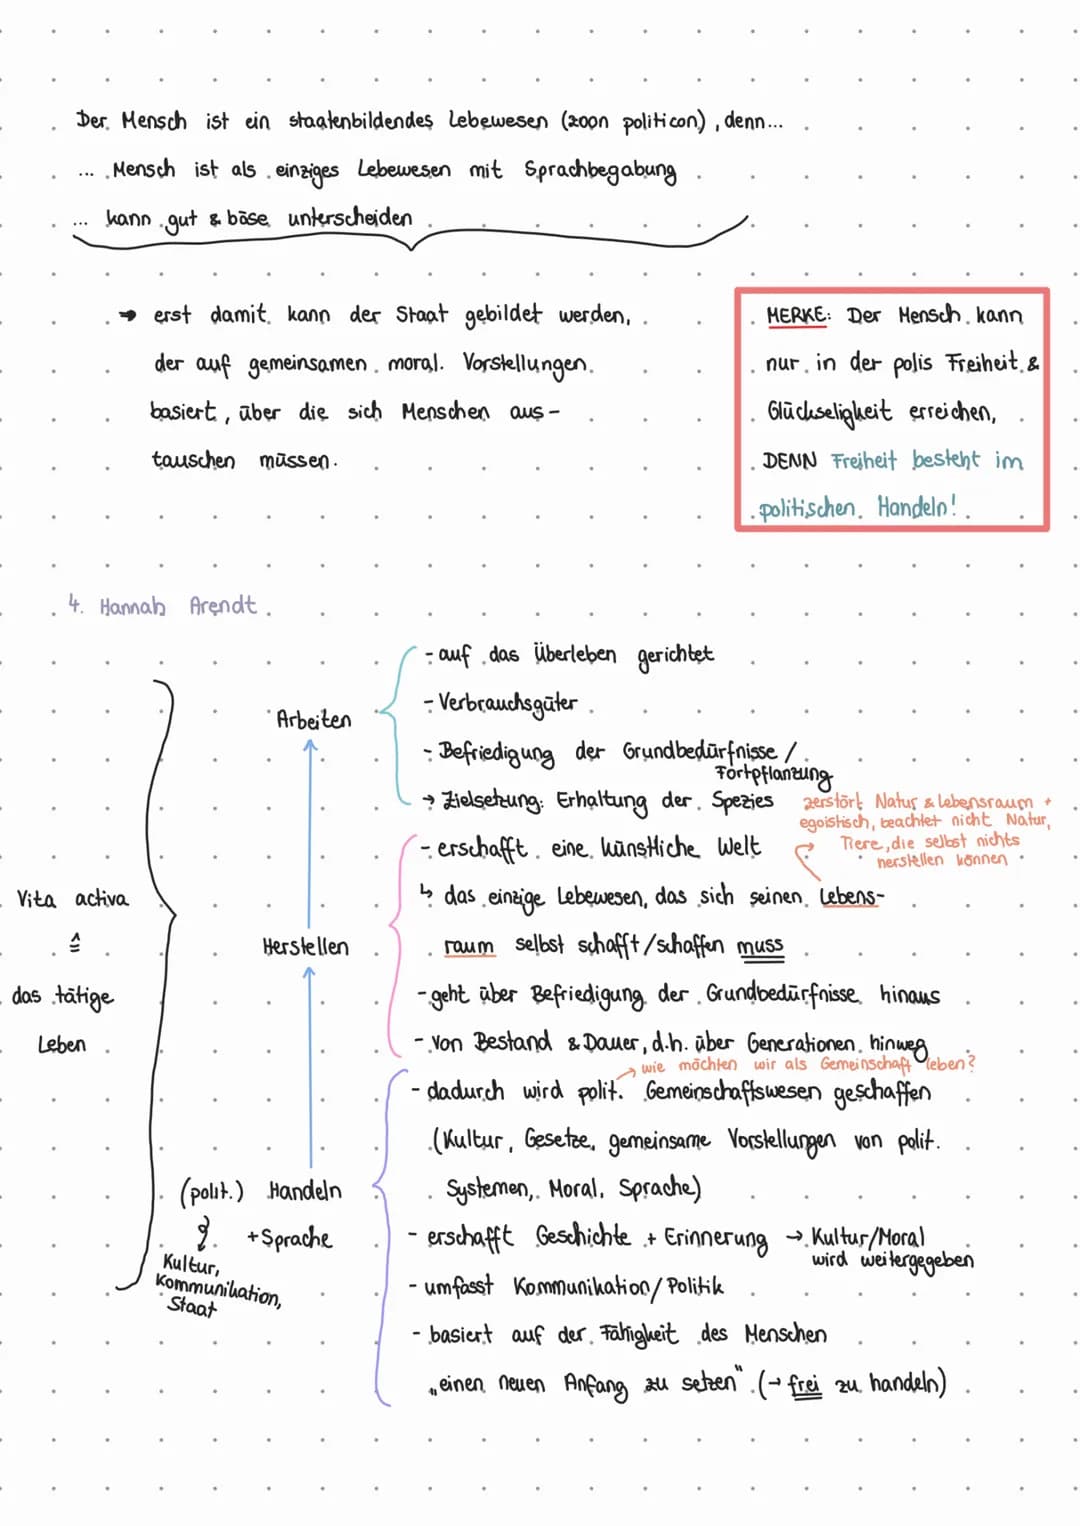 Der Mensch ist ein staatenbildendes Lebewesen (zoon politicon), denn...
... Mensch ist als einziges Lebewesen mit Sprachbegabung
... kann gut & böse unterscheiden
→ erst damit kann der Staat gebildet werden,
der auf gemeinsamen moral. Vorstellungen
basiert, über die sich Menschen aus-
tauschen müssen.
MERKE: Der Mensch kann
nur in der polis Freiheit &
Glückseligkeit erreichen,
DENN Freiheit besteht im
politischen Handeln!
4. Hannah Arendt
Vita activa
≙
das tätige
Leben
Arbeiten
- auf das Überleben gerichtet
- Verbrauchsgüter
- Befriedigung der Grundbedürfnisse /
Fortpflanzung
→ Zielsetzung: Erhaltung der Spezies
zerstört Natur & Lebensraum +
egoistisch, beachtet nicht Natur,
Tiere, die selbst nichts
herstellen können
Herstellen
- erschafft eine künstliche Welt
↳ das einzige Lebewesen, das sich seinen Lebens-
raum selbst schafft/schaffen muss
- geht über Befriedigung der Grundbedürfnisse hinaus
- von Bestand & Dauer, d.h. über Generationen hinweg
→ wie möchten wir als Gemeinschaft leben?
(polit.) Handeln
+ Sprache
Kultur,
Kommunikation,
Staat
- dadurch wird polit. Gemeinschaftswesen geschaffen
(Kultur, Gesetze, gemeinsame Vorstellungen von polit.
Systemen, Moral, Sprache)
- erschafft Geschichte + Erinnerung → Kultur/Moral
wird weitergegeben
- umfasst Kommunikation/Politik
- basiert auf der Fähigkeit des Menschen
„einen neuen Anfang zu setzen" (→ frei zu handeln)